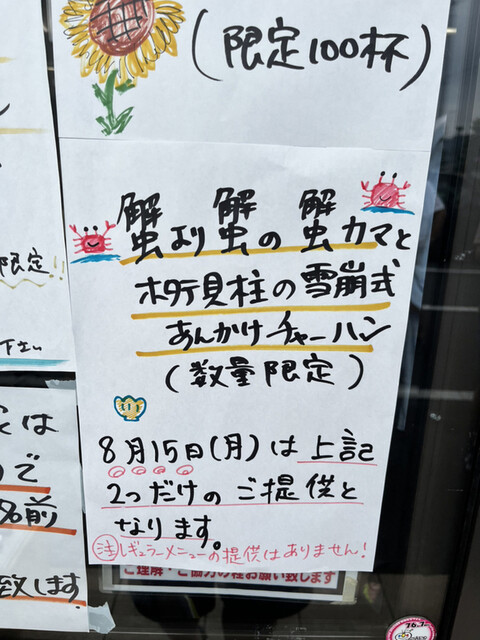 (限定100杯)
蟹より蟹の蟹カマと
ホタテ貝柱の雪崩式
あんかけチャーハン
(数量限定)
8月15日(月)は上記
2つだけのご提供と
なります。
注レギュラーメニューの提供はありません!
ご理解・ご協力の程お願い致します
限定!!
下さい
は
で
前
致します